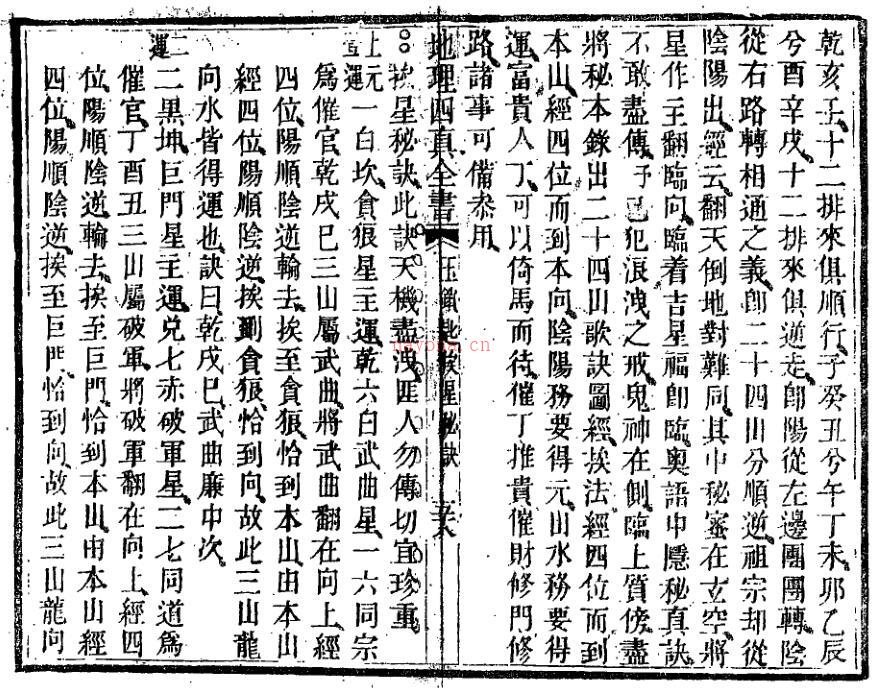 乾亥壬十二排來俱順行子癸丑兮午丁未卯乙辰
兮酉辛戌十二排來俱逆走卽陽從左邊團團轉陰
從右路轉相通之義卽二十四山分順逆祖宗却從
陰陽出經云翻天倒地對難同其中秘密在玄空將
星作主翻臨向臨着吉星福卽臨奧語中隱秘真訣
不敢盡傳予已犯浪洩之戒鬼神在側臨上質傍盡
將秘本錄出二十四山歌訣圖經挨法經四位而到
本山經四位而到本向陰陽務要得元山水務要得
運富貴人丁可以倚馬而待催丁推貴催財修門修
路諸事可備叅用
地理四真全書 玉鑰匙挨星秘訣
挨星秘訣此訣天機盡洩匪人勿傳切宜珍重
上元一運 一白坎貪狼星主運乾六白武曲星一六同宗
爲催官乾戌巳三山屬武曲將武曲翻在向上經
四位陽順陰逆輪去挨至貪狼恰到本山由本山
經四位陽順陰逆挨到貪狼恰到向故此三山龍
向水皆得運也訣曰乾戌巳武曲廉中次
二運 二黑坤巨門星主運兌七赤破軍星二七同道爲
催官丁酉丑三山屬破軍將破軍翻在向上經四
位陽順陰逆輪去挨至巨門恰到本山由本山經
四位陽順陰逆挨至巨門恰到向故此三山龍向
nayona.cn